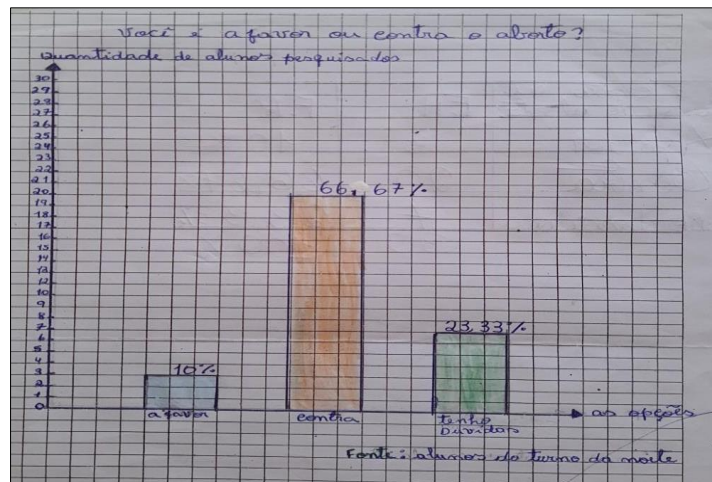 Você é a favor ou contra o aborto?
Quantidade de alunos pesquisados
30
29
28
27
26
25
24
23
22
21
20
19
18
17
16
15
14
13
12
10
9
8
7
6
5
4
3
2
1
0
66,67%
23,33%
10%
a favor
contra
tenho
Dúvidas
as opções
Fonte: alunos do turno da noite